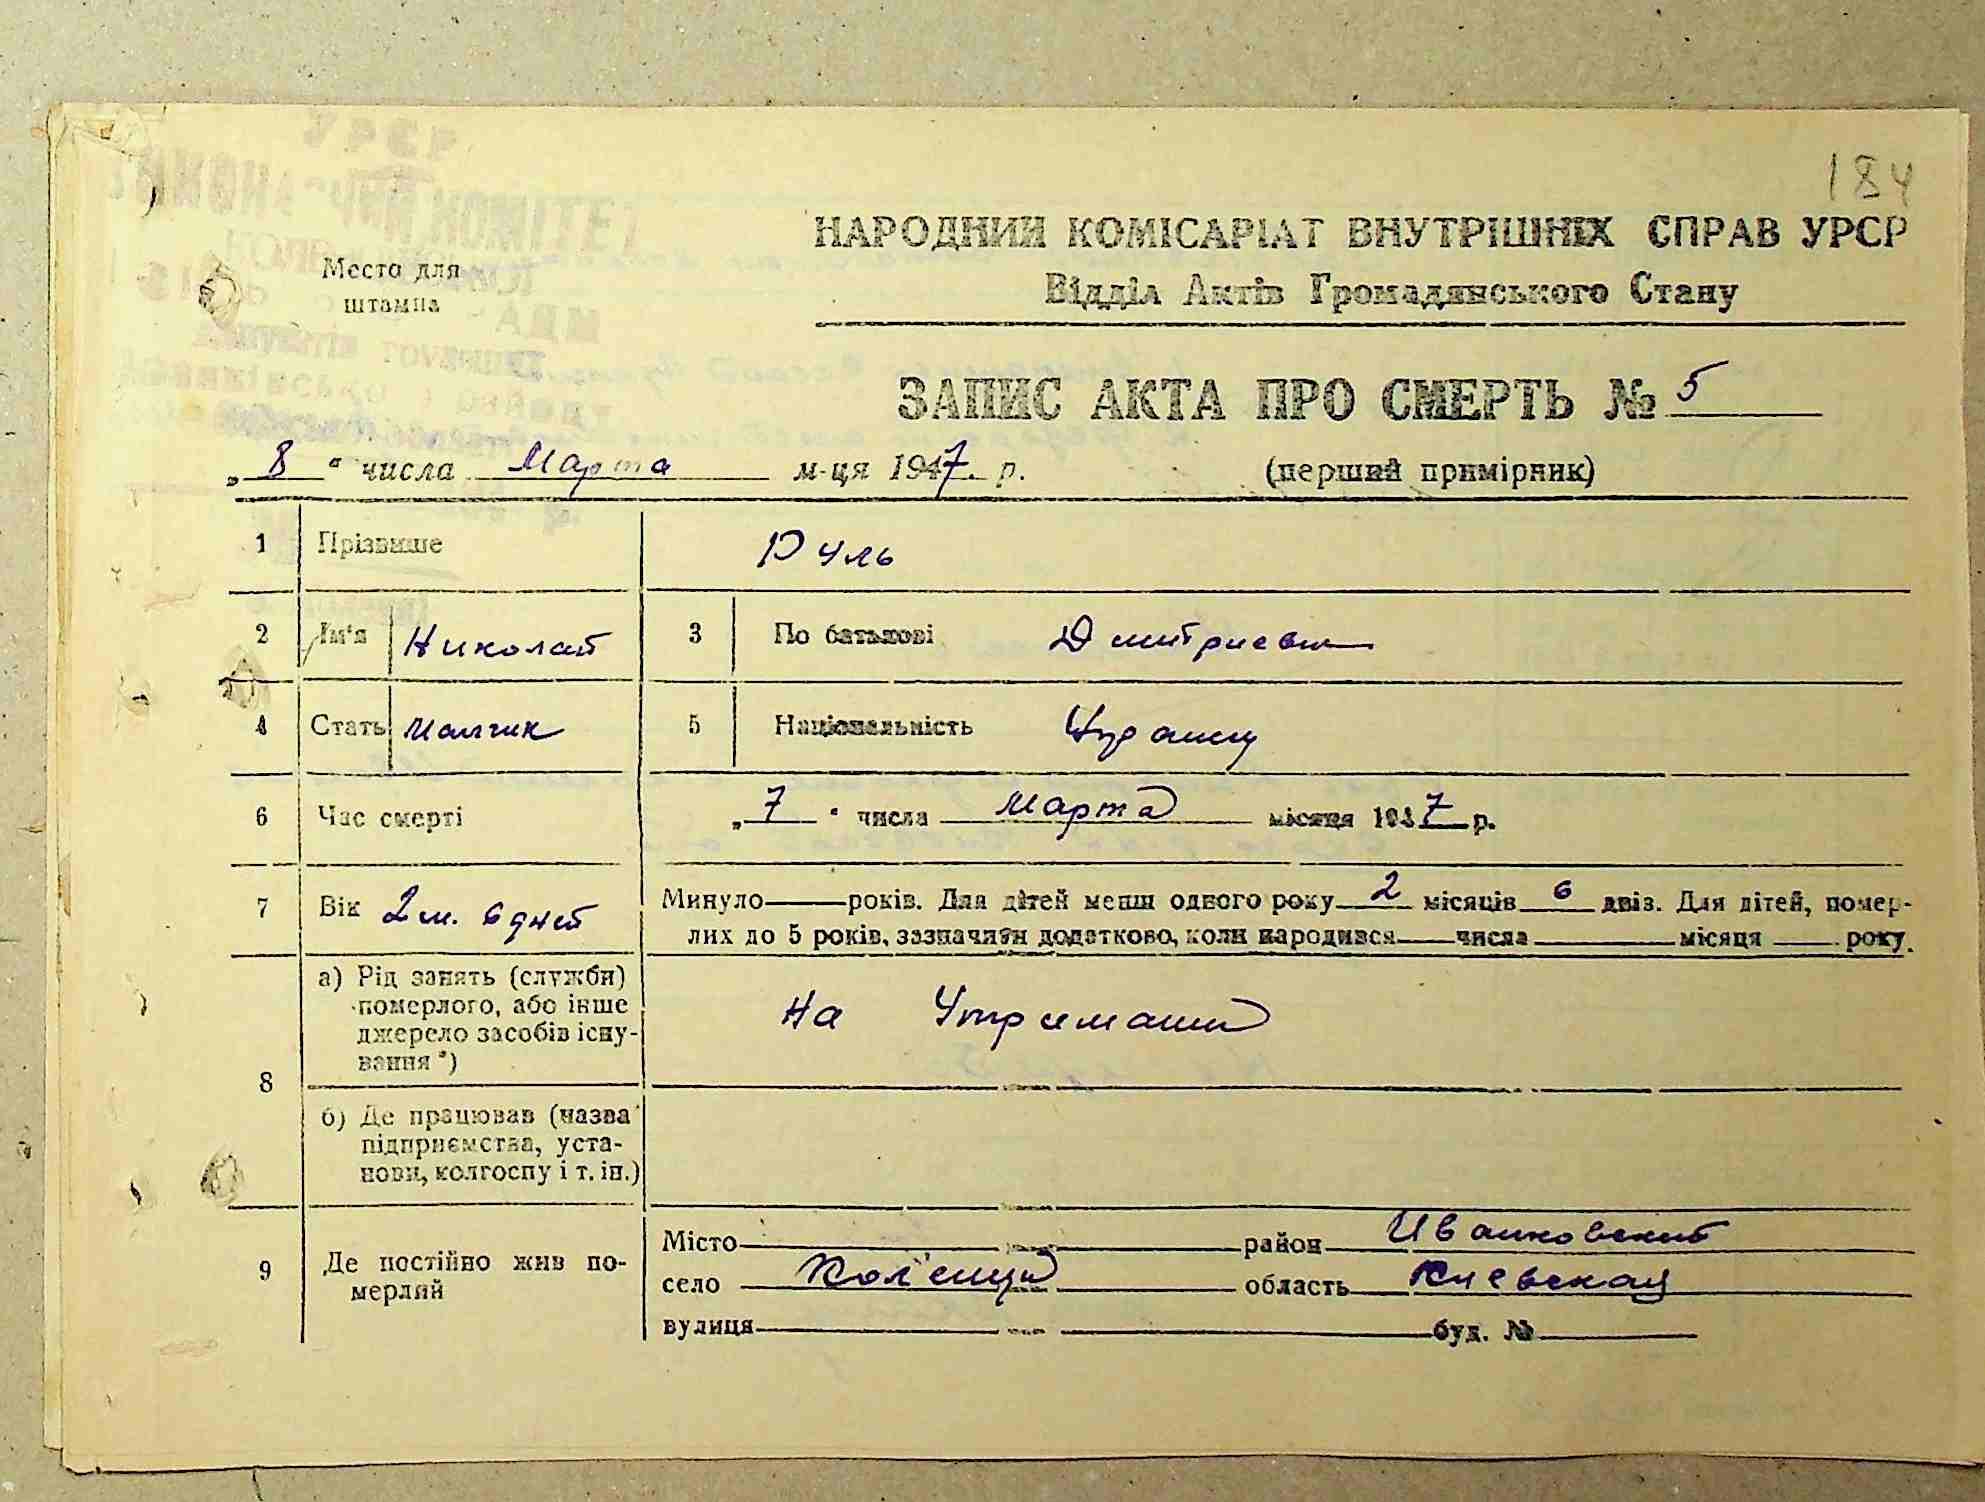 184
УРСР
ВИКОНАВЧИЙ КОМІТЕТ
Место для
штампа
НАРОДНИЙ КОМІСАРІАТ ВНУТРІШНІХ СПРАВ УРСР
Відділ Актів Громадянського Стану
ЗАПИС АКТА ПРО СМЕРТЬ № 5
„ 8 “ числа Марта м-ця 1947. р. (перший примірник)
1 Прізвище Руль
2 Ім'я Николай 3 По батькові Дмитриевич
4 Стать Малчик 5 Національність
6 Час смерті „ 7 “ числа Марта місяця 1947 р.
7 Вік 2 м. 6 дней Минуло — років. Для дітей менш одного року 2 місяців 6 днів. Для дітей, помер-
лих до 5 років, зазначити додатково, коли народився — числа — місяця — року.
8 а) Рід занять (служби)
померлого, або інше
джерело засобів існу-
вання *) На Утримании
б) Де працював (назва
підприємства, уста-
нови, колгоспу і т. ін.)
9 Де постійно жив по-
мерлий
Місто район Иванковский
село Кол'енци область Киевская
вулиця буд. №